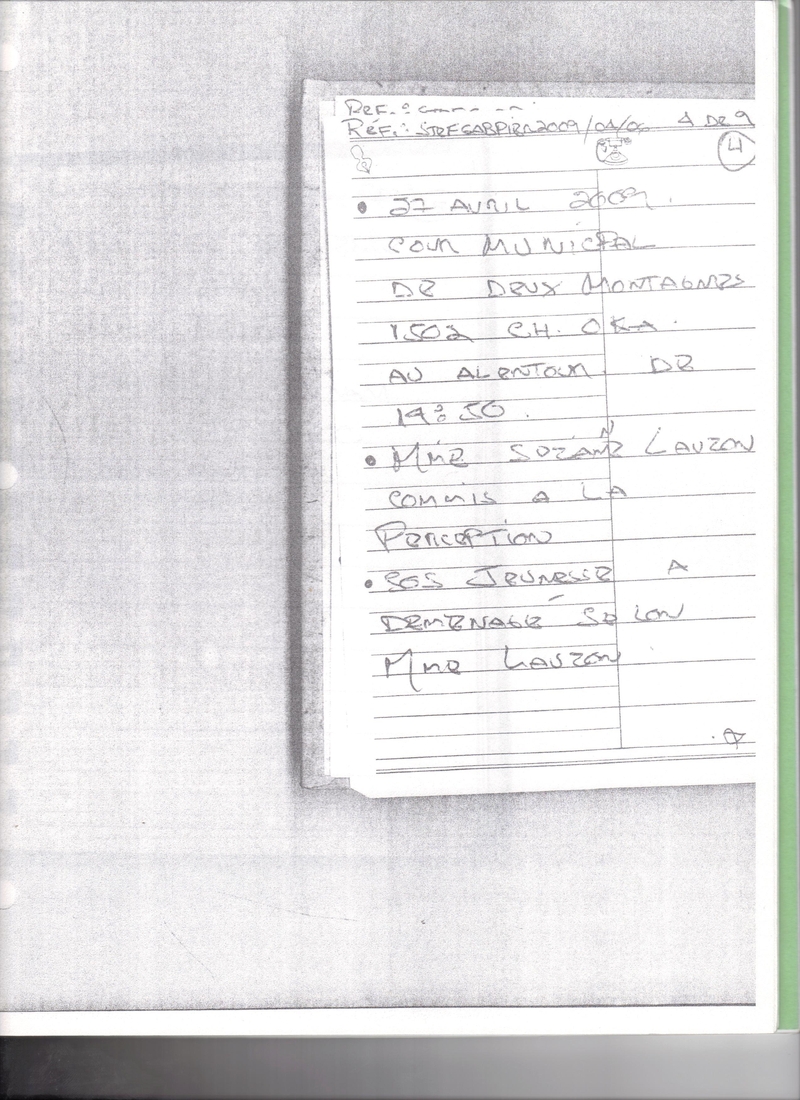 REF.:
REF.: STREGABPIRA2009/04/06 4 DE 9
4
• 27 AVRIL 2009.
COUR MUNICIPAL
DE DEUX MONTAGNES
1502 CH. OKA.
AU ALENTOUR DE
14:50.
• MME SUZANNE LAUZON
COMMIS A LA
PERCEPTION
• SOS JEUNESSE A
DEMENAGÉ SELON
MME LAUZON